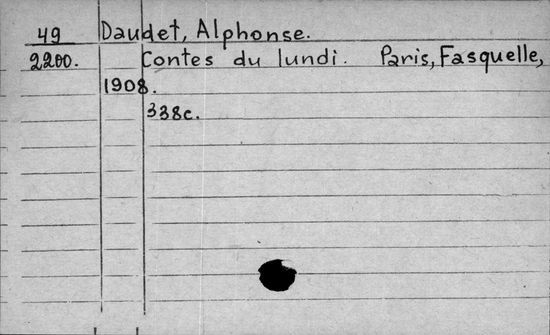 49 Daudet, Alphonse.
2200. Contes du lundi. Paris, Fasquelle,
1908.
338c.